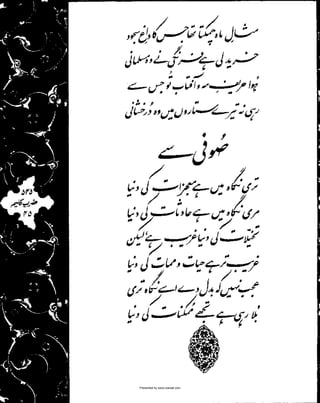 مثالِ ماہ چمکتا تھا جس کا داغِ سجود
خرید لی ہے فرنگی نے وہ مسلمانی
ہُوا حریفِ مہ و آفتاب تُو جس سے
رہی نہ تیرے ستاروں میں وہ دُرخشانی
صُوفی سے
تری نگاہ میں ہے معجزات کی دنیا
مری نگاہ میں ہے حادثات کی دنیا
تخیّلات کی دنیا غریب ہے، لیکن
غریب تر ہے حیات و ممات کی دنیا
عجب نہیں کہ بدل دے اسے نگاہ تری
بُلا رہی ہے تجھے ممکنات کی دنیا
۵۳۵
ضربِ کلیم
۳۵